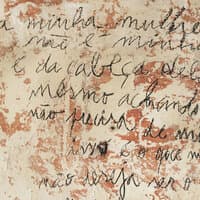 a minha mulher
não é minha
é da cabeça del
mesmo achando
não precisa de mi
isso é o que m
não deseja ser o